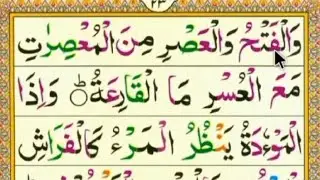 ٢٣
وَالْفَتْحُ وَالْعَصْرِ مِنَ الْمُعْصِرٰتِ
مَعَ الْعُسْرِ مَا الْقَارِعَةُ ۞ وَاِذَا
الْمَوْءٗدَةُ يَنْظُرُ الْمَرْءُ كَالْفَرَاشِ